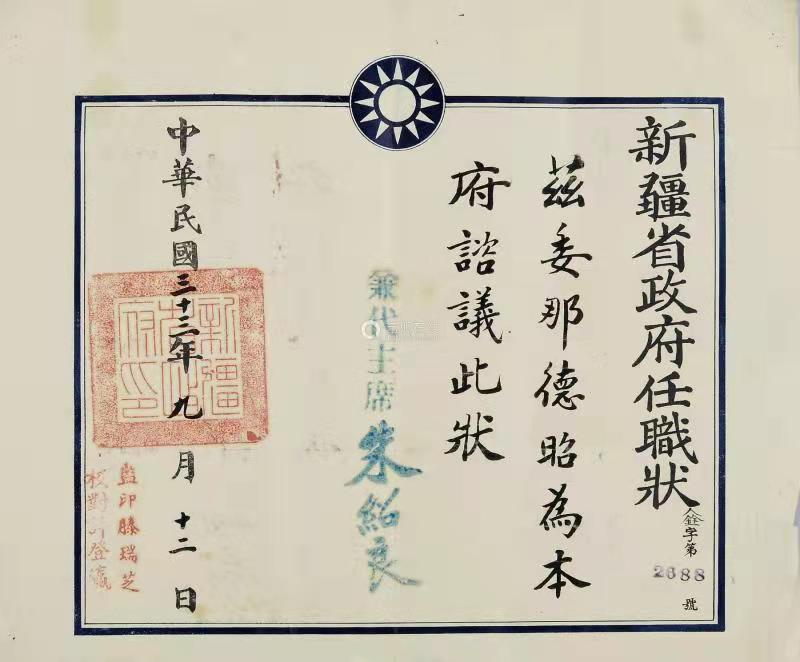 新疆省政府任職狀
人銓字第2688號
茲委那德昭為本
府諮議此狀
兼代主席朱紹良
中華民國三十三年九月十二日
新疆省政府印
監印滕瑞芝
校對許登瀛